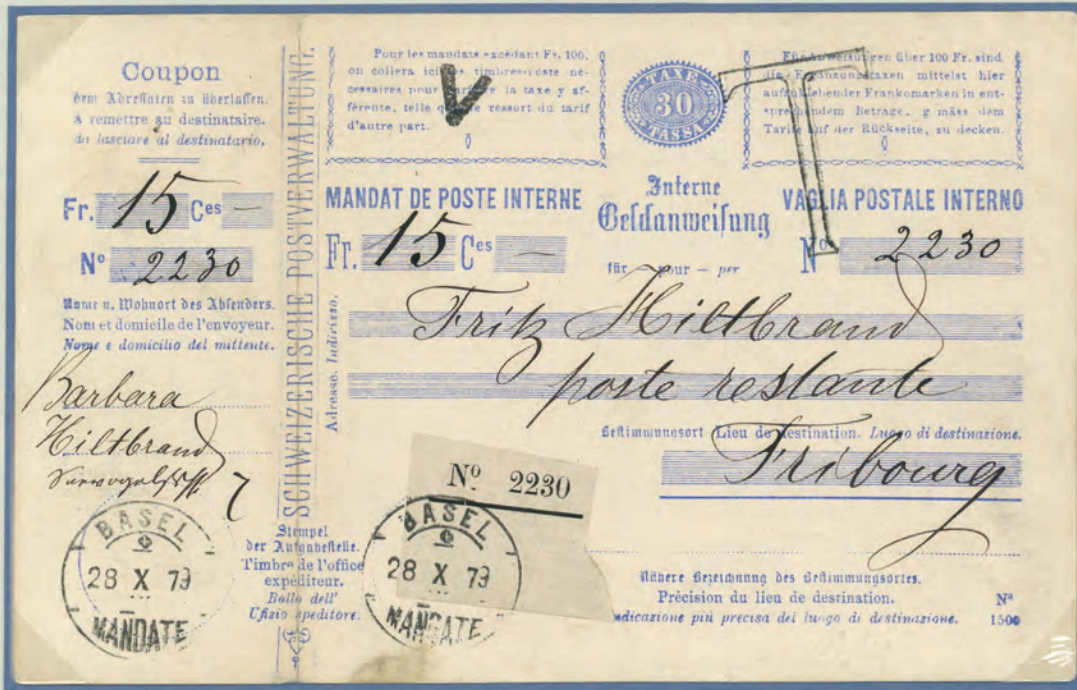 Coupon
dem Adressaten zu überlassen.
à remettre au destinataire.
da lasciare al destinatario.
Fr. 15 Ces —
No 2230
Name u. Wohnort des Absenders.
Nom et domicile de l'envoyeur.
Nome e domicilio del mittente.
Barbara
Hiltbrand
7
BASEL
28 X 79
MANDATE
SCHWEIZERISCHE POSTVERWALTUNG.
Pour les mandats excédant Fr. 100,
on collera ici les timbres-poste né-
cessaires pour la taxe y af-
férente, telle ressort du tarif
d'autre part.
V
TAXE
30
TASSA
Für Anweisungen über 100 Fr. sind
die Ergänzungstaxen mittelst hier
aufzuklebender Frankomarken in ent-
sprechendem Betrage, gemäss dem
Tarife auf der Rückseite, zu decken.
T
MANDAT DE POSTE INTERNE
Interne
Geldanweisung
VAGLIA POSTALE INTERNO
Fr. 15 Cs —
für — pour — per
No 2230
Adresse. Indirizzo.
Fritz Hiltbrand
poste restante
Bestimmungsort Lieu de destination. Luogo di destinazione.
Fribourg
No 2230
Stempel
der Aufgabestelle.
Timbre de l'office
expéditeur.
Bollo dell'
Ufizio speditore.
BASEL
28 X 79
MANDATE
Nähere Bezeichnung des Bestimmungsortes.
Précision du lieu de destination.
indicazione più precisa del luogo di destinazione.
No
1500